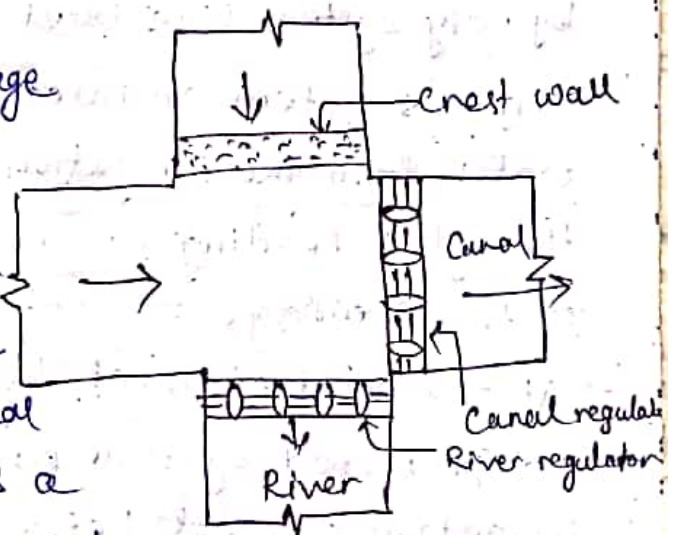 ge
Crest wall
Canal
al
Canal regulat
River regulator
a
River